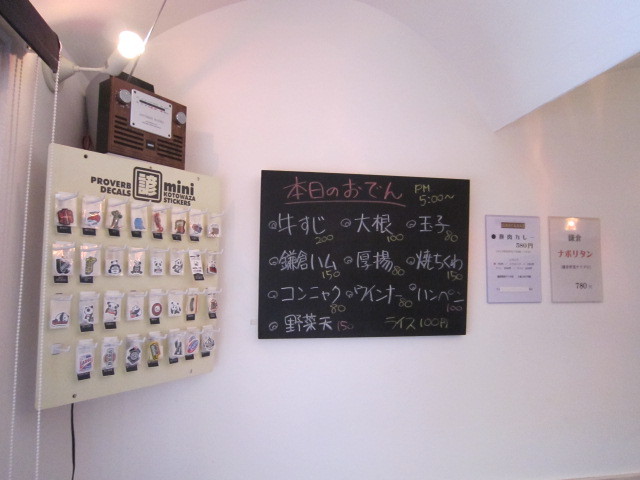 PROVERB
DECALS
諺
mini
KOTOWAZA
STICKERS
本日のおでん
PM
5:00〜
牛すじ 200
大根 100
玉子 80
鎌倉ハム 150
厚揚 80
焼ちくわ 150
コンニャク 80
ウインナー
ハンペン 100
野菜天 150
ライス 100円
580円
鎌倉
ナポリタン
780円